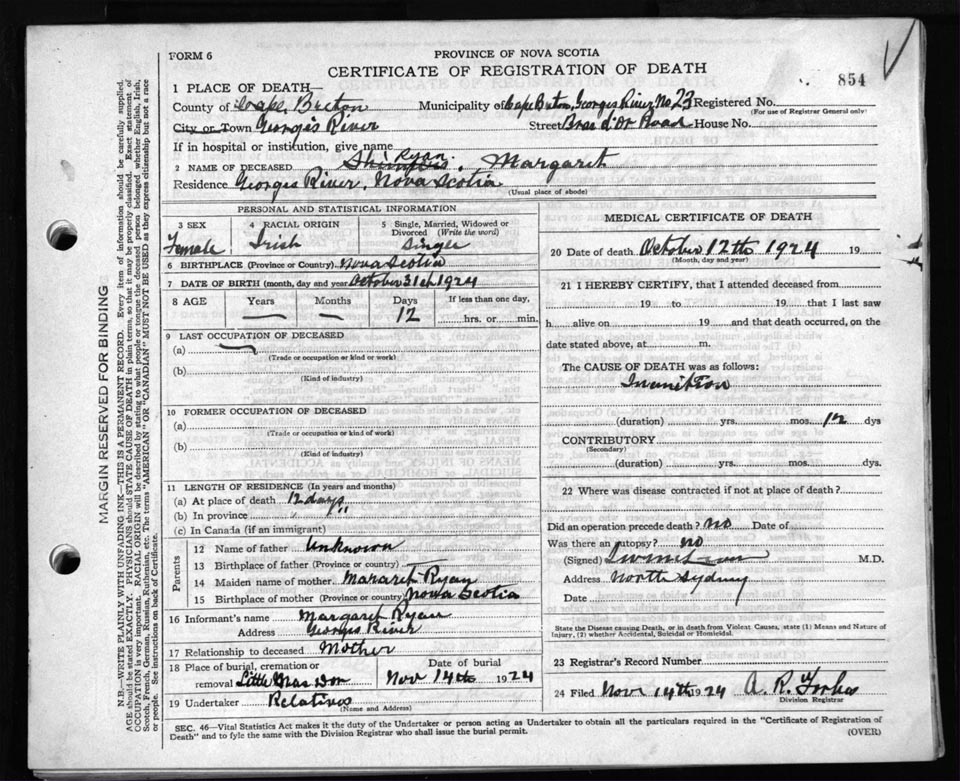 FORM 6
PROVINCE OF NOVA SCOTIA
CERTIFICATE OF REGISTRATION OF DEATH
854
1 PLACE OF DEATH—
County of Cape Breton Municipality of Cape Breton, Georges River No 23 Registered No.
(For use of Registrar General only)
City or Town Georges River Street Bras d'Or Road House No.
If in hospital or institution, give name
Ryan
2 NAME OF DECEASED , Margaret
Residence Georges River, Nova Scotia
(Usual place of abode)
PERSONAL AND STATISTICAL INFORMATION
3 SEX
Female
4 RACIAL ORIGIN
Irish
5 Single, Married, Widowed or Divorced (Write the word)
Single
6 BIRTHPLACE (Province or Country) Nova Scotia
7 DATE OF BIRTH (month, day and year October 31st 1924
8 AGE Years Months Days If less than one day,
— — 12 hrs. or min.
9 LAST OCCUPATION OF DECEASED
(a)
(Trade or occupation or kind of work)
(b)
(Kind of industry)
10 FORMER OCCUPATION OF DECEASED
(a)
(Trade or occupation or kind of work)
(b)
(Kind of industry)
11 LENGTH OF RESIDENCE (In years and months)
(a) At place of death 12 days
(b) In province " "
(c) In Canada (if an immigrant)
Parents
12 Name of father Unknown
13 Birthplace of father (Province or Country)
14 Maiden name of mother Mararet Ryan
15 Birthplace of mother (Province or country) Nova Scotia
16 Informant's name Margaret Ryan
Address Georges River
17 Relationship to deceased Mother
18 Place of burial, cremation or removal Little Bras Dor
Date of burial
Nov 14th 1924
19 Undertaker Relatives
(Name and Address)
MEDICAL CERTIFICATE OF DEATH
20 Date of death October 12th 1924 19
(Month, day and year)
21 I HEREBY CERTIFY, that I attended deceased from
19 to 19 that I last saw
h alive on 19 and that death occurred, on the
date stated above, at m.
The CAUSE OF DEATH was as follows:
Inanition
(duration) yrs. mos. 12 dys
CONTRIBUTORY
(Secondary)
(duration) yrs. mos. dys.
22 Where was disease contracted if not at place of death?
Did an operation precede death? no Date of
Was there an autopsy? no
(Signed) M.D.
Address North Sydney
Date
State the Disease causing Death, or in death from Violent Causes, state (1) Means and Nature of
Injury, (2) whether Accidental, Suicidal or Homicidal.
23 Registrar's Record Number
24 Filed Nov 14th 1924 A. R. Forbes
Division Registrar
SEC. 46—Vital Statistics Act makes it the duty of the Undertaker or person acting as Undertaker to obtain all the particulars required in the "Certificate of Registration of
Death" and to fyle the same with the Division Registrar who shall issue the burial permit.
(OVER)
MARGIN RESERVED FOR BINDING
N.B.—WRITE PLAINLY WITH UNFADING INK—THIS IS A PERMANENT RECORD. Every item of information should be carefully supplied.
AGE should be stated EXACTLY. PHYSICIANS should STATE CAUSE OF DEATH in plain terms, so that it may be properly classified. Exact statement of
OCCUPATION is very important. RACIAL ORIGIN will be described by stating to what people or tongue the deceased person belonged whether English, Irish,
Scotch, French, German, Russian, Ruthenian, etc. The terms "AMERICAN" OR "CANADIAN" MUST NOT BE USED as they express citizenship but not a race
or people. See instructions on back of Certificate.